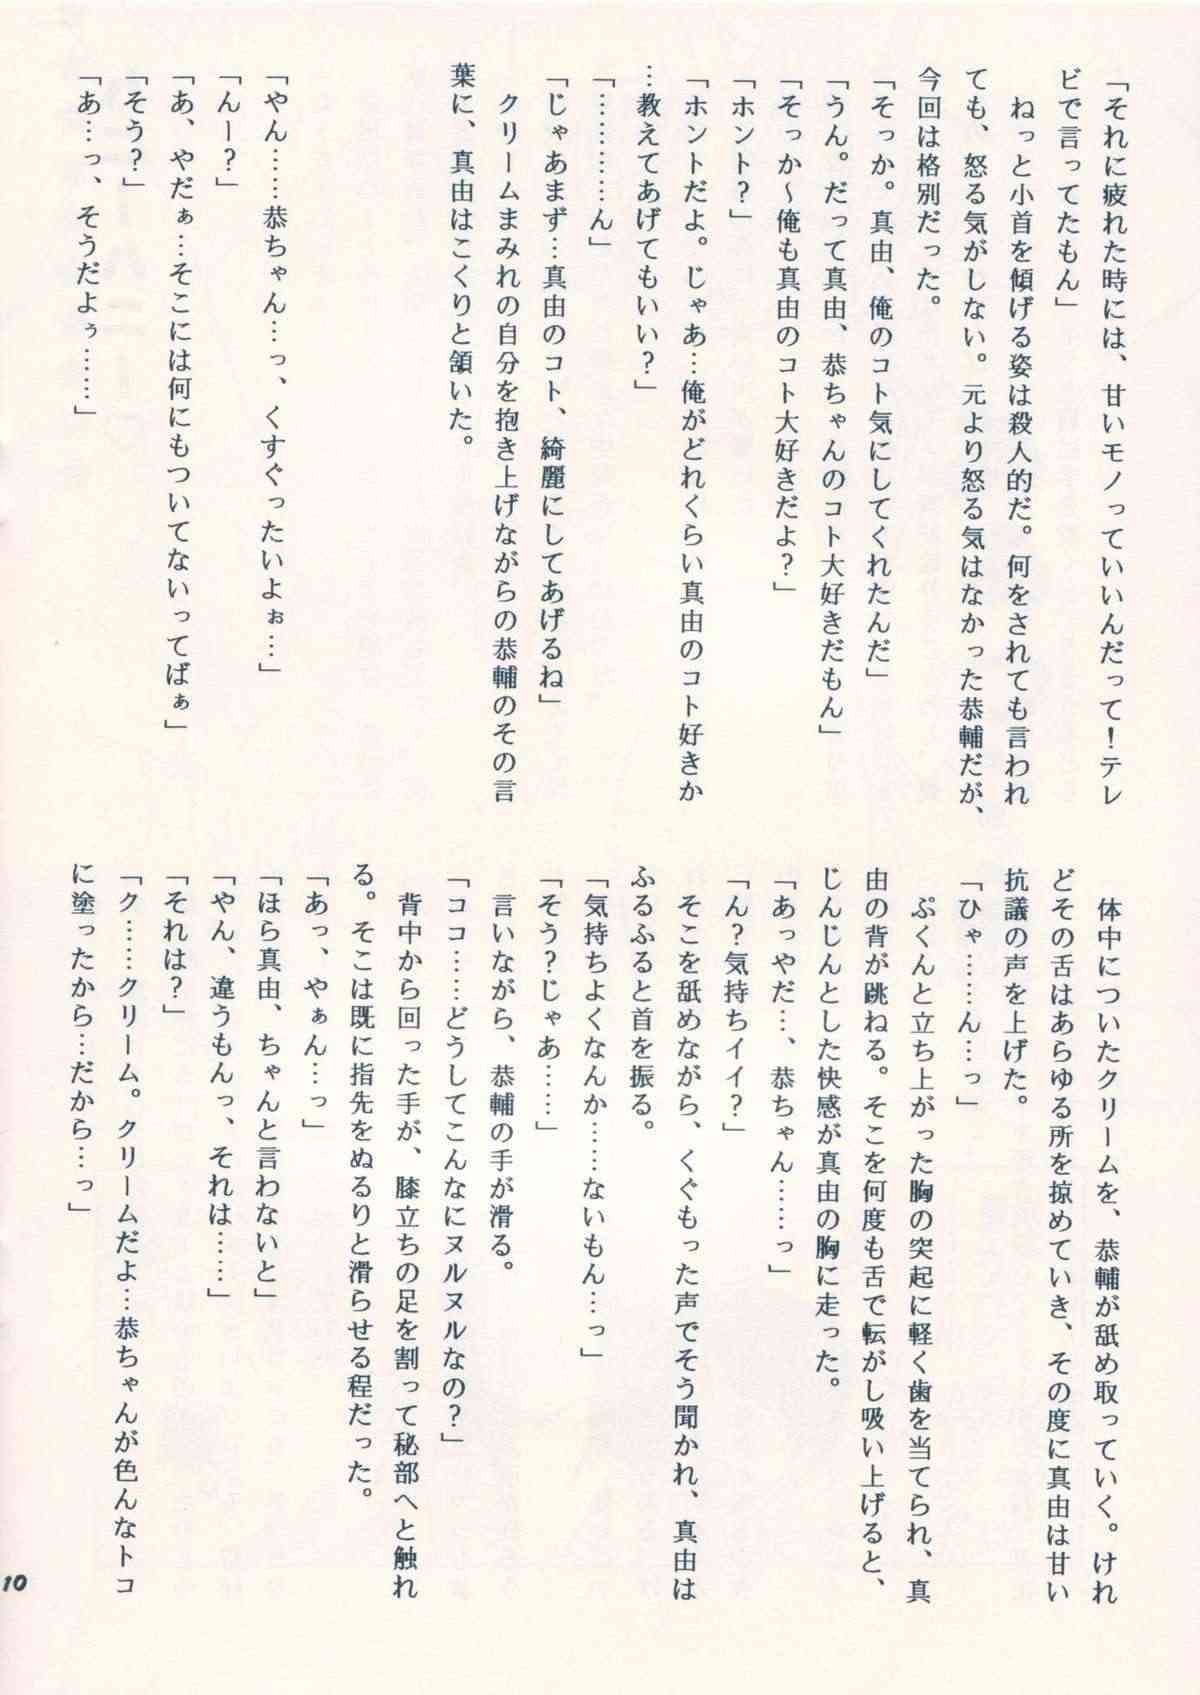 「それに疲れた時には、甘いモノっていいんだって！テレ
ビで言ってたもん」
ねっと小首を傾げる姿は殺人的だ。何をされても言われ
ても、怒る気がしない。元より怒る気はなかった恭輔だが、
今回は格別だった。
「そっか。真由、俺のコト気にしてくれたんだ」
「うん。だって真由、恭ちゃんのコト大好きだもん」
「そっか〜俺も真由のコト大好きだよ？」
「ホント？」
「ホントだよ。じゃあ…俺がどれくらい真由のコト好きか
…教えてあげてもいい？」
「…………ん」
「じゃあまず…真由のコト、綺麗にしてあげるね」
クリームまみれの自分を抱き上げながらの恭輔のその言
葉に、真由はこくりと頷いた。
「やん……恭ちゃん…っ、くすぐったいよぉ…」
「んー？」
「あ、やだぁ…そこには何にもついてないってばぁ」
「そう？」
「あ…っ、そうだよぅ……」
体中についたクリームを、恭輔が舐め取っていく。けれ
どその舌はあらゆる所を掠めていき、その度に真由は甘い
抗議の声を上げた。
「ひゃ……ん…っ」
ぷくんと立ち上がった胸の突起に軽く歯を当てられ、真
由の背が跳ねる。そこを何度も舌で転がし吸い上げると、
じんじんとした快感が真由の胸に走った。
「あっやだ…、恭ちゃん……っ」
「ん？気持ちイイ？」
そこを舐めながら、くぐもった声でそう聞かれ、真由は
ふるふると首を振る。
「気持ちよくなんか……ないもん…っ」
「そう？じゃあ……」
言いながら、恭輔の手が滑る。
「ココ……どうしてこんなにヌルヌルなの？」
背中から回った手が、膝立ちの足を割って秘部へと触れ
る。そこは既に指先をぬるりと滑らせる程だった。
「あっ、やぁん…っ」
「ほら真由、ちゃんと言わないと」
「やん、違うもんっ、それは……」
「それは？」
「ク……クリーム。クリームだよ…恭ちゃんが色んなトコ
に塗ったから…だから…っ」
10